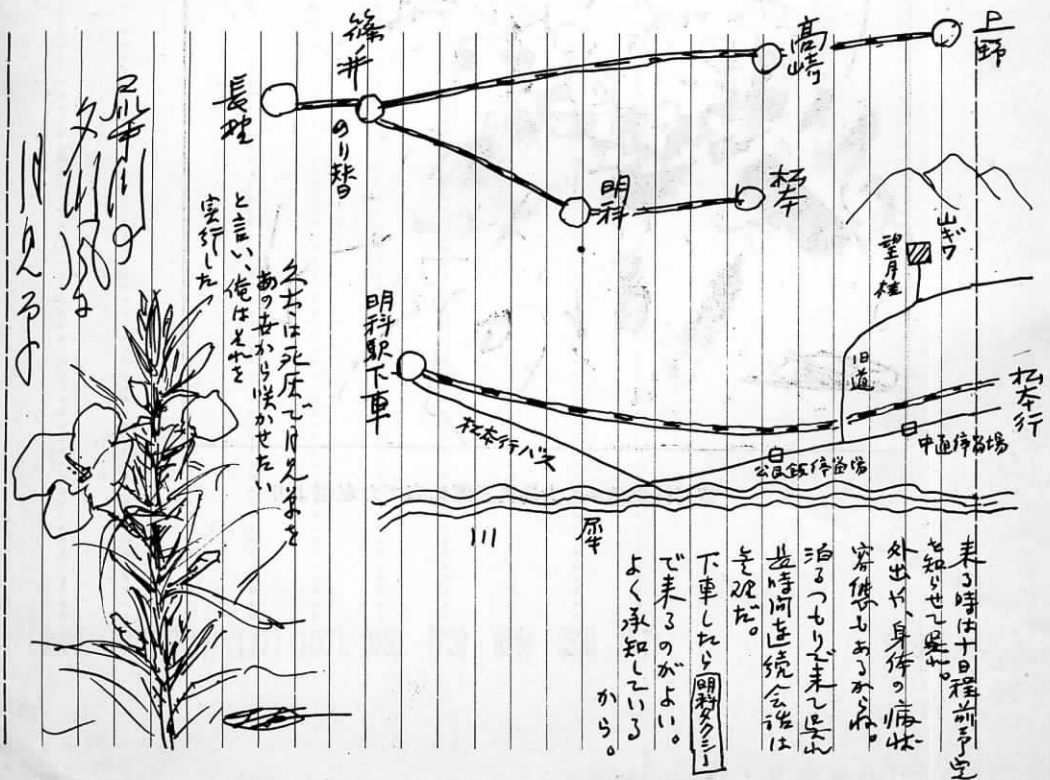 上野
高崎
篠ノ井
のり替
長野
明科
松本
山ギワ
望月桂
旧道
松本行
中通停留場
公民館停留場
明科駅下車
松本行バス
犀川
来る時は十日程前予定
を知らせて呉れ。
外出や、身体の病状
容態もあるからね。
泊るつもりで来て呉れ
長時間連続会話は
無理だ。
下車したら明科タクシー
で来るのがよい。
よく承知している
から。
久さんは死圧で月見草を
あの女から咲かせたい
と言い、俺はそれを
実行した
犀川の
夕川風に
月見草